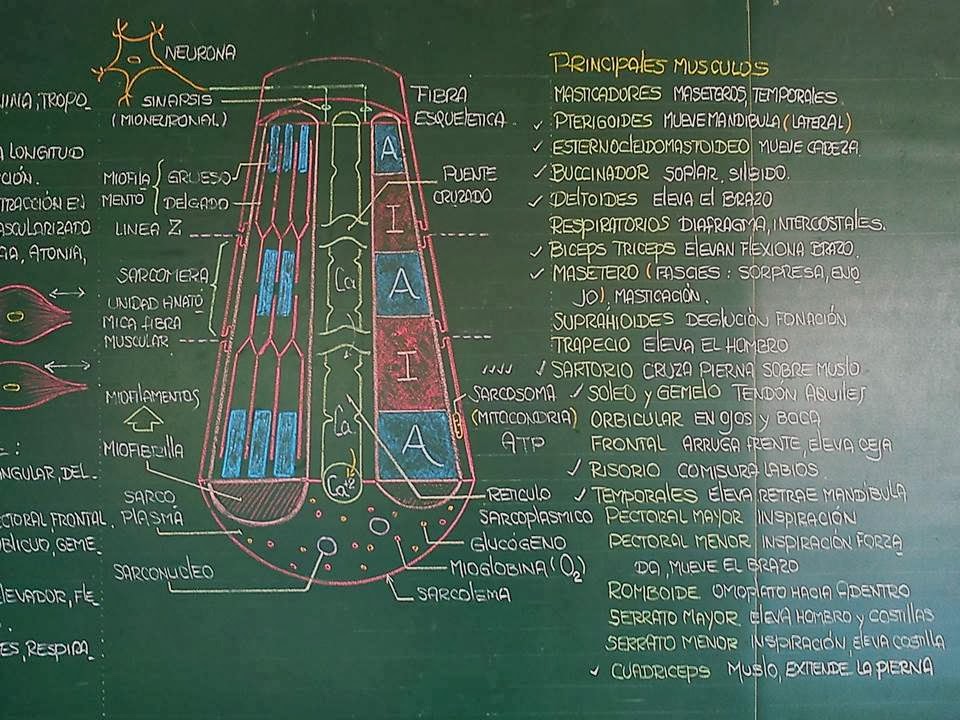 NINA, TROPO_
A LONGITUD
CIÓN.
TRACCIÓN EN
ASCULARIZADO
GIA, ATONIA,
E :
ANGULAR, DEL_
ECTORAL FRONTAL,
OBLICUO, GEME_
ELEVADOR, FLE_
ES, RESPIRA_
NEURONA
SINAPSIS
(MIONEURONIAL)
MIOFILA
MENTO
GRUESO
DELGADO
LINEA Z
SARCOMERA
UNIDAD ANATÓ
MICA FIBRA
MUSCULAR
MIOFILAMENTOS
MIOFIBRILLA
SARCO
PLASMA
SARCONUCLEO
FIBRA
ESQUELETICA
PUENTE
CRUZADO
A
I
A
I
A
Ca
Ca
Ca⁺²
SARCOSOMA
(MITOCONDRIA)
ATP
RETICULO
SARCOPLASMICO
GLUCÓGENO
MIOGLOBINA (O₂)
SARCOLEMA
PRINCIPALES MUSCULOS
MASTICADORES MASETEROS, TEMPORALES.
✓ PTERIGOIDES MUEVE MANDIBULA (LATERAL)
✓ ESTERNOCLEIDOMASTOIDEO MUEVE CABEZA.
✓ BUCCINADOR SOPLAR, SILBIDO.
✓ DELTOIDES ELEVA EL BRAZO
RESPIRATORIOS DIAFRAGMA, INTERCOSTALES.
✓ BICEPS TRICEPS ELEVAN FLEXIONA BRAZO.
✓ MASETERO (FASCIES : SORPRESA, ENO
JO), MASTICACIÓN.
SUPRAHIOIDES DEGLUCIÓN FONACIÓN
TRAPECIO ELEVA EL HOMBRO
✓✓✓✓ ✓ SARTORIO CRUZA PIERNA SOBRE MUSLO
✓ SOLEO Y GEMELO TENDÓN AQUILES
ORBICULAR EN OJOS Y BOCA
FRONTAL ARRUGA FRENTE, ELEVA CEJA
✓ RISORIO COMISURA LABIOS
✓ TEMPORALES ELEVA RETRAE MANDÍBULA
PECTORAL MAYOR INSPIRACIÓN
PECTORAL MENOR INSPIRACIÓN FORZA
DA, MUEVE EL BRAZO
ROMBOIDE OMOPLATO HACIA ADENTRO
SERRATO MAYOR ELEVA HOMBRO Y COSTILLAS
SERRATO MENOR INSPIRACIÓN, ELEVA COSTILLA
✓ CUADRICEPS MUSLO, EXTIENDE LA PIERNA